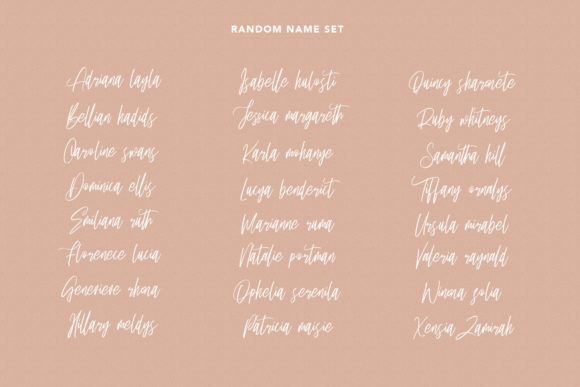 RANDOM NAME SET
Adriana layla
Bellian hadids
Caroline swans
Dominica ellis
Emiliana ruth
Florenece lucia
Genevieve rhona
Hillary meldys
Isabelle hulosti
Jessica margareth
Karla mohanye
Lucya benderict
Marianne ruma
Natalie portman
Ophelia serenila
Patricia maisie
Quincy sharonete
Ruby whitneys
Samantha hill
Tiffany orndys
Ursula mirabel
Valeria raynald
Winona solia
Xensia Zamirah